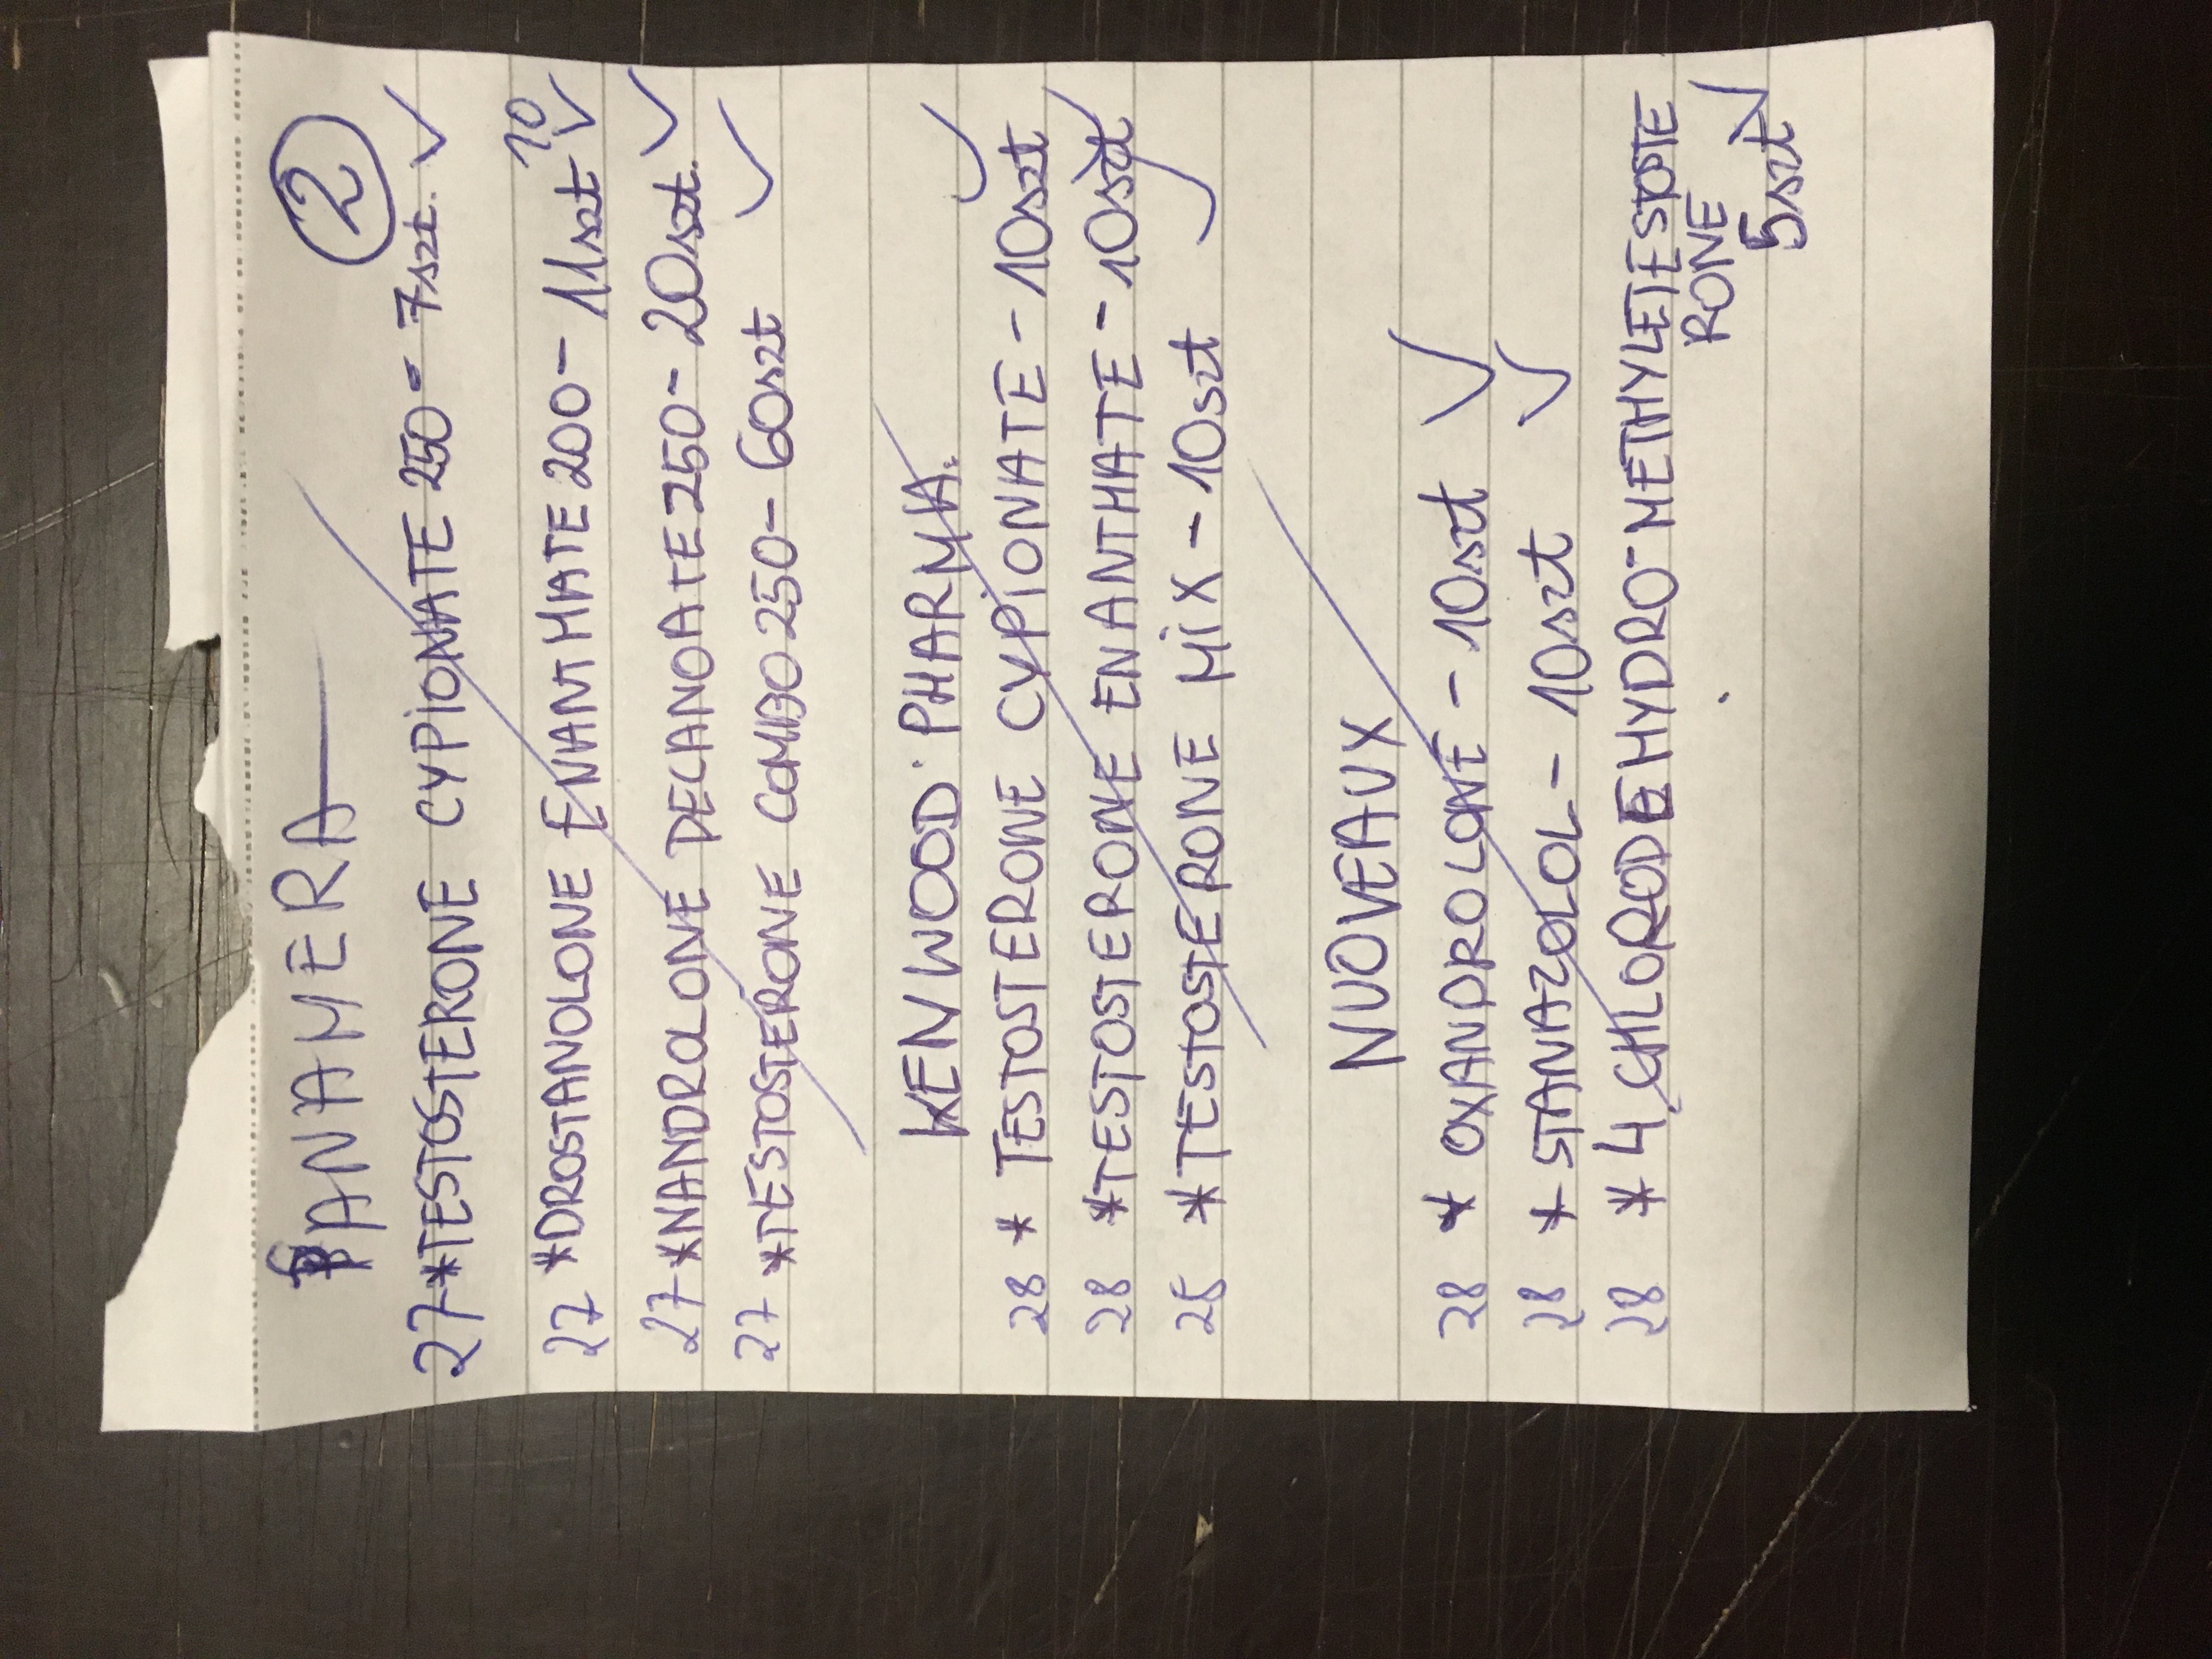 2
PANAMERA
27 *TESTOSTERONE CYPIONATE 250 - 7szt.
10
27 *DROSTANOLONE ENANTHATE 200 - 11szt
27 *NANDROLONE DECANOATE 250 - 20szt.
27 *TESTOSTERONE COMBO 250 - 60szt
KENWOOD PHARMA.
28 * TESTOSTERONE CYPIONATE - 10szt
28 *TESTOSTERONE ENANTHATE - 10szt
28 *TESTOSTERONE MiX - 10szt
NUOVEAUX
28 * OXANDROLONE - 10szt
28 * STANAZOLOL - 10szt
28 * 4 CHLORODEHYDRO-METHYLETESTOTE
RONE
5szt